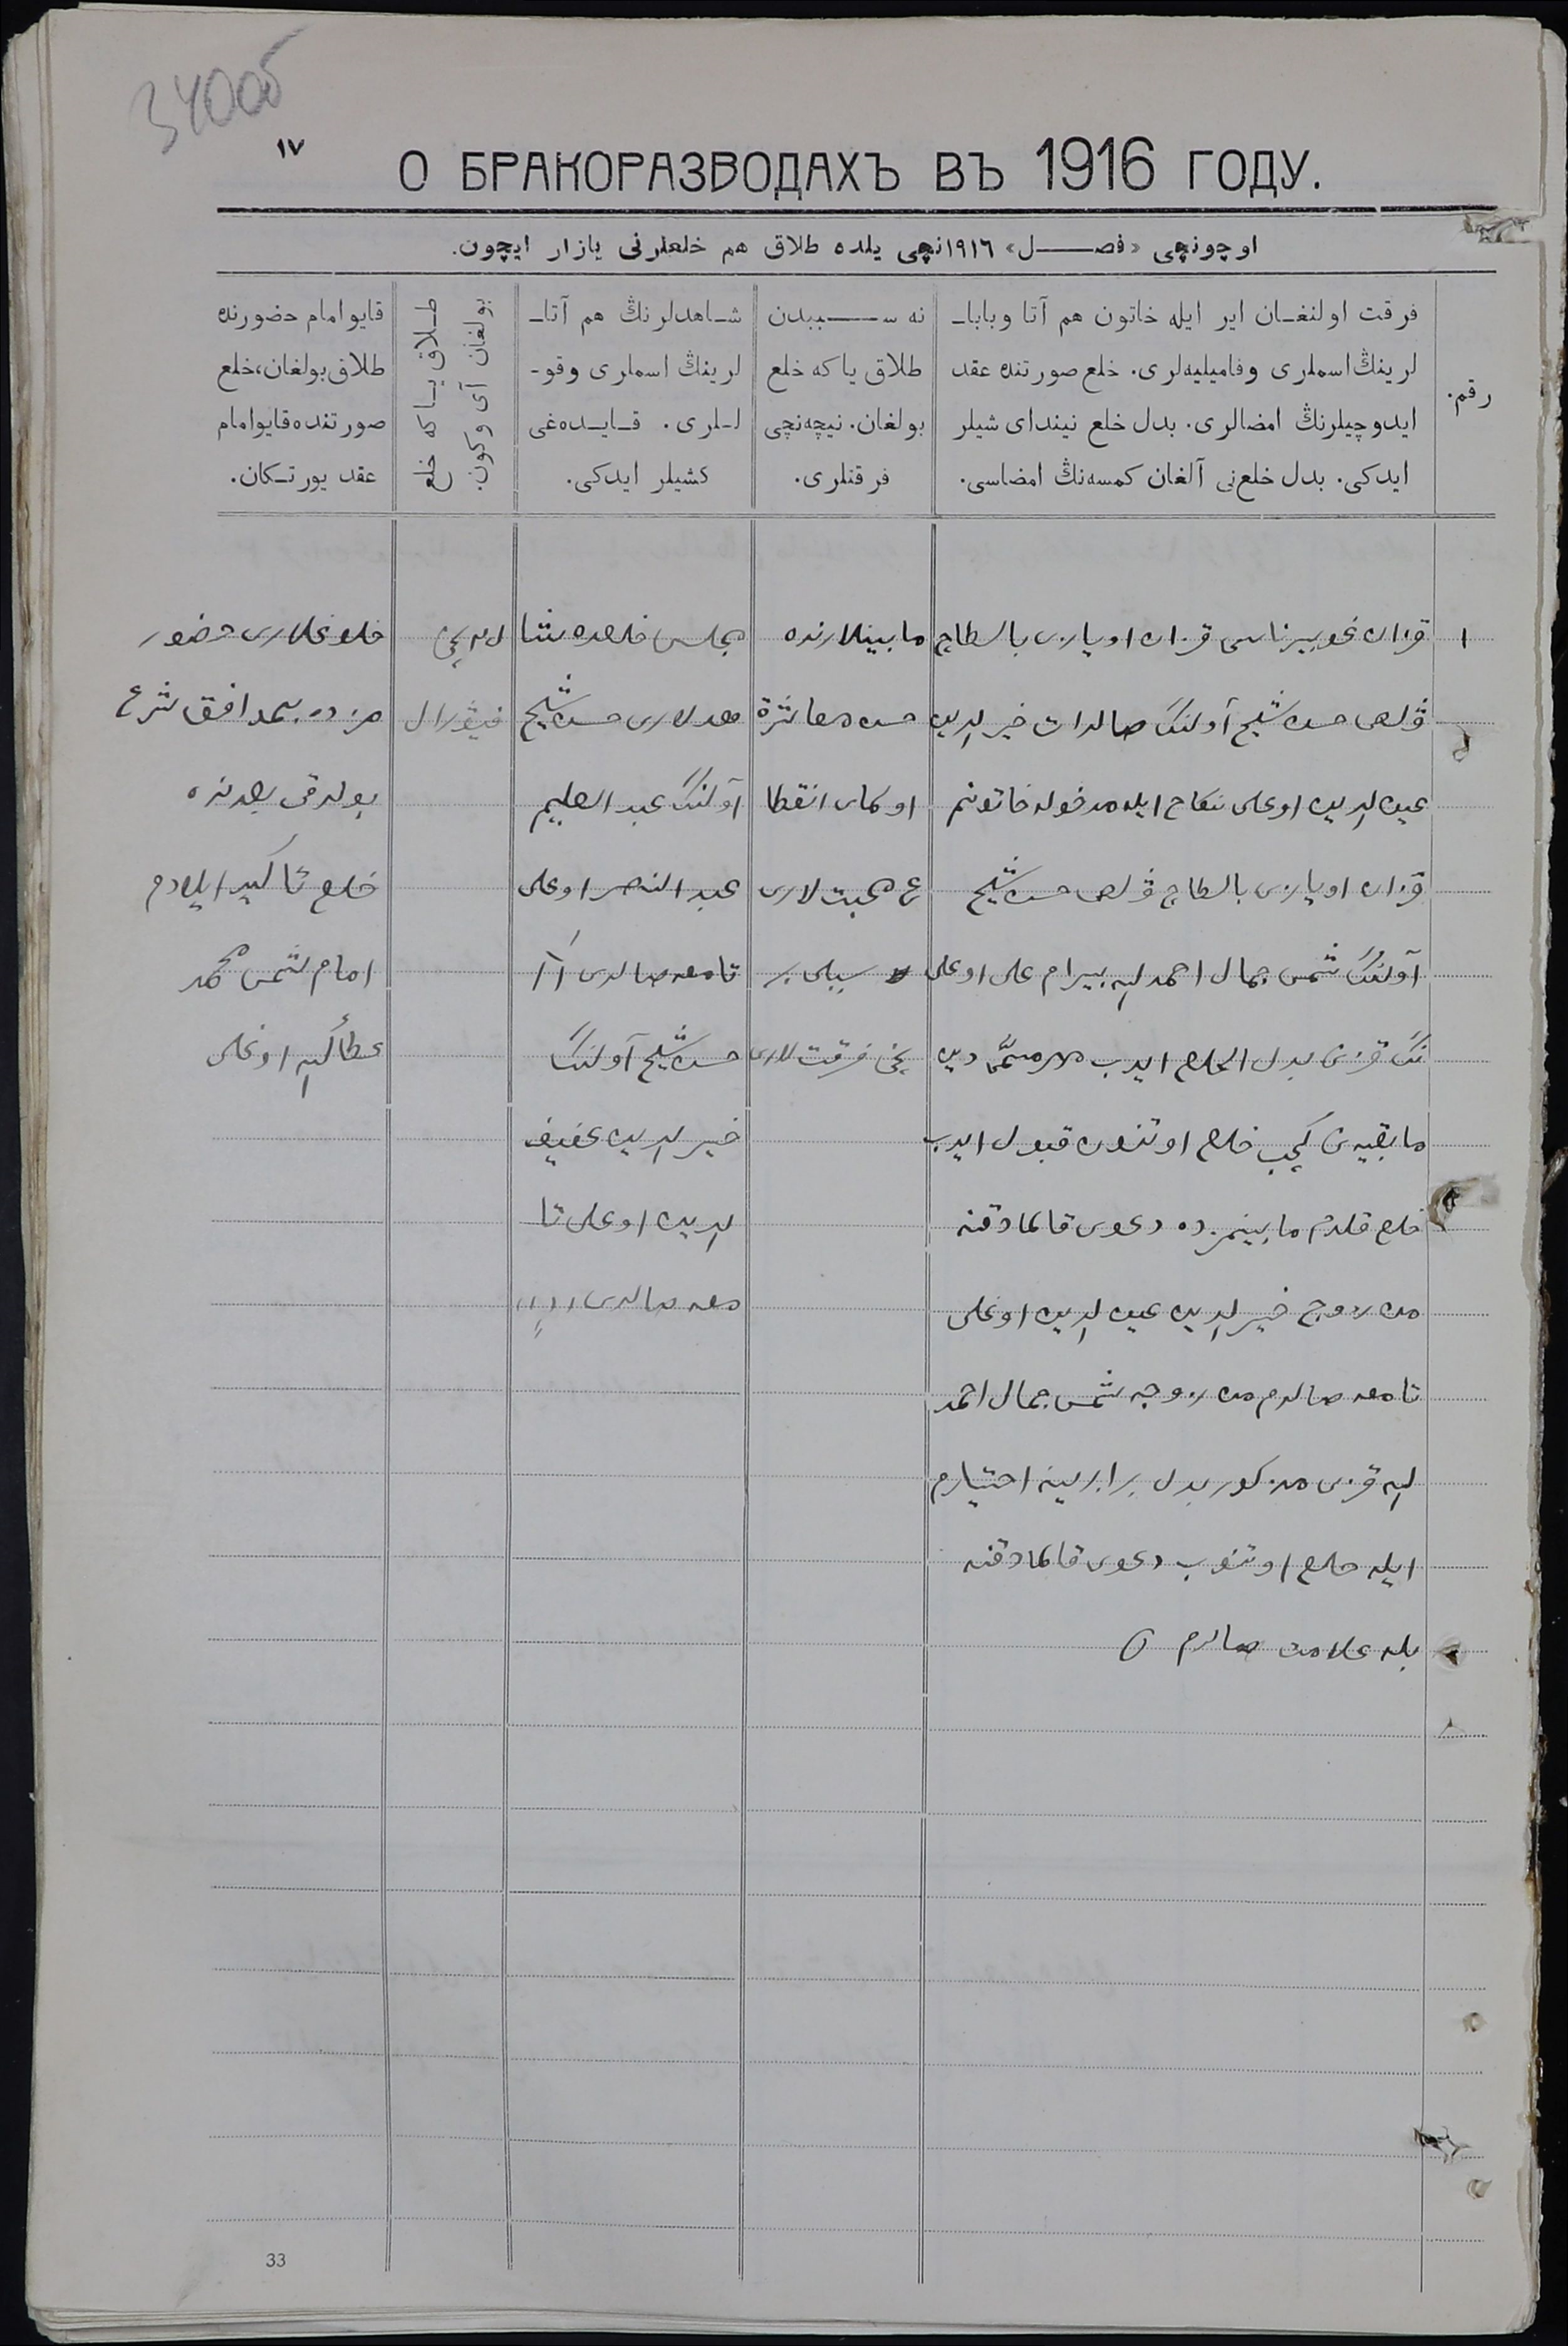 340об
١٧
О БРАКОРАЗВОДАХЪ ВЪ 1916 ГОДУ.
اوچونچی «فصل» ١٩١٦نچی یلده طلاق هم خلعلرنی یازار ایچون.
رقم.
فرقت اولنغان ایر ایله خاتون هم آتا وبابا-
لرینڭ اسملری وفامیلیه‌لری. خلع صورتنده عقد
ایدوچیلرنڭ امضالری. بدل خلع نیندای شیلر
ایدکی. بدل خلع‌نی آلغان کمسه‌نڭ امضاسی.
نه سببدن
طلاق یاکه خلع
بولغان. نیچه‌نچی
فرقتلری.
شاهدلرنڭ هم آتا-
لرینڭ اسملری وقو-
لـلری. قـایـده‌غی
کشیلر ایدکی.
طـلاق یـاکه خلع
بولغان آی وکون.
قایو امام حضورنده
طلاق بولغان، خلع
صورتنده قایو امام
عقد یورتـکان.
١
قزان غوبیرناسی قزان اویازی بالطاچ
حسن شیخ آولنڭ صالدات خیرالدین
عین الدین اوغلی نکاح ایله مدخوله خاتونم
قزان اویازی بالطاچ حسن شیخ
آولنڭ شمس جمال احمد الله بیرام علی اوغلی
نڭ قزنی بدل الخلع ایدب مهر مسمّی دین
مابقیه‌نی کیچب خلع اوتنون قبول ایدب
خلع قلدم مابینمزده دعوی قالمادقنه
من زوج خیرالدین عین الدین اوغلی
تامغه صالدم من زوجه شمس جمال احمد
الله قزی مذکور بدل برابرینه اختیارم
ایله خلع اوتنوب دعوی قالمادقنه
بله علامت صالدم
مابینلارنده
حسن معاشرة
اوکمای انقطا
ع محبت لاری
سببلی بر
نچی فرقت لاری
مجلس خلعده شا
هدلاری حسن شیخ
آولنڭ عبد العلیم
عبد النصر اوغلی
تامغه صالدی
حسن شیخ آولنڭ
خیرالدین عفیف
الدین اوغلی تا
مغه صالدی
فیورال
خلوغلاری حضور
مزده موافق شرع
بولدقی بعدنده
خلع تأکید ایلادم
امام شمس محمد
عطأ الله اوغلی
33